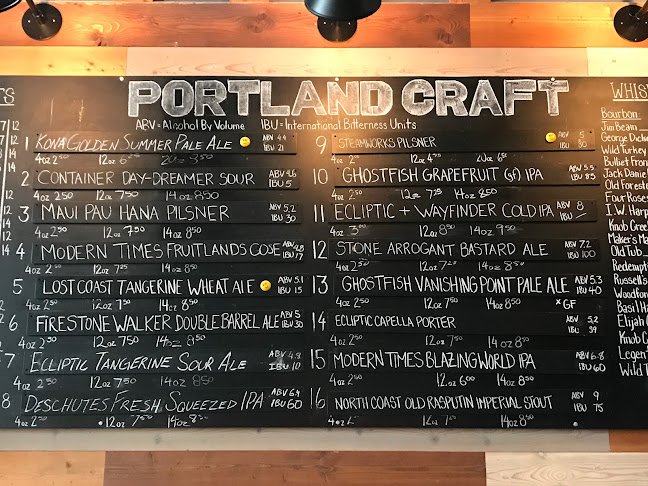 PORTLAND CRAFT
ABV = Alcohol By Volume IBU = International Bitterness Units
1 KONA GOLDEN SUMMER PALE ALE ABV 4.4 IBU 21
4oz 2 12oz
2 CONTAINER DAY-DREAMER SOUR ABV 4.6 IBU 5
4oz 2.50 12oz 7.50 14oz 8.50
3 MAUI PAU HANA PILSNER ABV 5.2 IBU 30
4oz 2.50 12oz 7.50 14oz 8.50
4 MODERN TIMES FRUITLANDS GOSE ABV 4.8 IBU 17
4oz 2.50 12oz 7.50 14oz 8.50
5 LOST COAST TANGERINE WHEAT ALE ABV 5.1 IBU 15
4oz 2.50 12oz 7.50 14oz 8.50
6 FIRESTONE WALKER DOUBLE BARREL ALE ABV 5 IBU 30
4oz 2.50 12oz 7.50 14oz 8.50
7 ECLIPTIC TANGERINE SOUR ALE ABV 4.8 IBU 10
4oz 2.50 12oz 7.50 14oz 8.50
8 DESCHUTES FRESH SQUEEZED IPA ABV 6.4 IBU 60
4oz 2.50 12oz 7.50 14oz
9 STEAMWORKS PILSNER ABV 5 IBU
4oz 2 12oz
10 GHOSTFISH GRAPEFRUIT (GF) IPA ABV 5.5 IBU
4oz 2.50 12oz 7.25 14oz 8.50
11 ECLIPTIC + WAYFINDER COLD IPA ABV 8 IBU
4oz 12oz 14oz 9.50
12 STONE ARROGANT BASTARD ALE ABV 7.2 IBU 100
4oz 2.50 12oz 7.50 14oz 8.50
13 GHOSTFISH VANISHING POINT PALE ALE ABV 5.3 IBU 40
4oz 2.50 12oz 7.50 14oz 8.50 *GF
14 ECLIPTIC CAPELLA PORTER ABV 5.2 IBU 39
4oz 2.50 12oz 7.50 14oz 8.50
15 MODERN TIMES BLAZING WORLD IPA ABV 6.8 IBU 60
4oz 2.50 12oz 14oz
16 NORTH COAST OLD RASPUTIN IMPERIAL STOUT ABV 9 IBU 75
4oz 12oz 14oz
WHIS
Bourbon:
Jim Beam
George Dicke
Wild Turkey
Bulleit Fron
Jack Daniel
Old Foreste
Four Rose
I.W. Harp
Knob Cree
Maker's Ma
Old Tub
Redempt
Russell's
Woodfor
Basil Ha
Elijah C
Knob C
Legen
Wild T